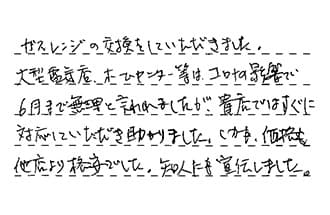 ガスレンジの交換をしていただきました。
大型電気店、ホームセンター等は、コロナの影響で
6月まで無理と言われましたが、貴店ではすぐに
対応していただき助かりました。しかも、価格も
他店より格安でした。知人にも宣伝しました。